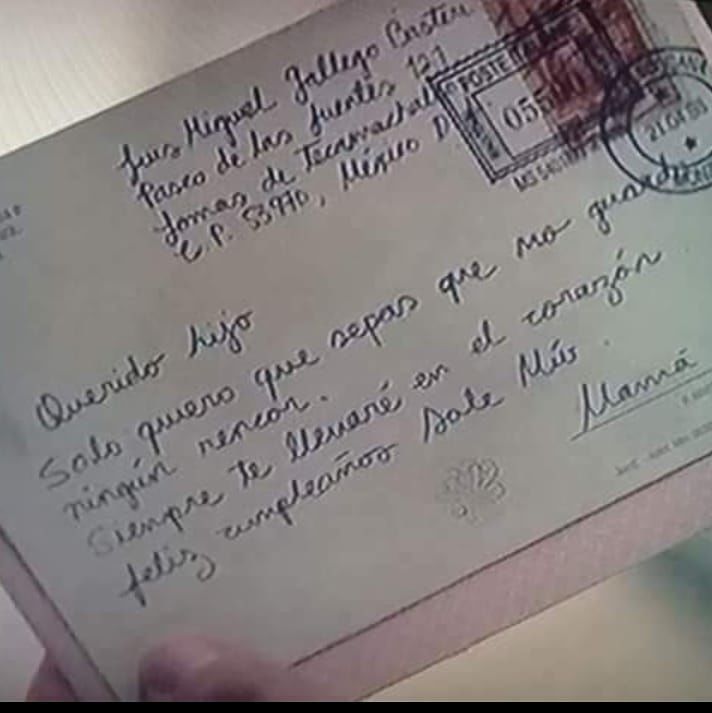 Luis Miguel Gallego Basteri
Paseo de las fuentes 121
Lomas de Tecamachalco
C.P. 53970, México D
POSTE
055
21.04
Querido hijo
Solo quiero que sepas que no guardo
ningún rencor.
Siempre te llevaré en el corazón
feliz cumpleaños Sole Mío.
Mamá